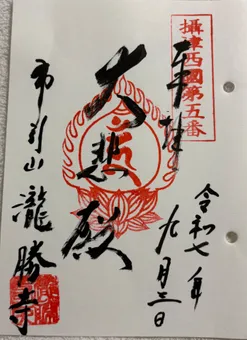 攝津西國第五番
奉拝
令和七年
九月三日
大悲殿
市引山 瀧勝寺